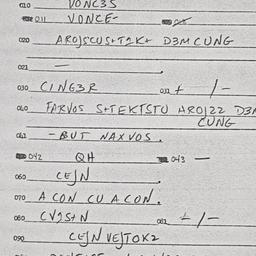 010 VONC3S
011 VONCE-
020 AROJSCUS+T2K+ D3M CUNG
021 —
030 CING3R 031 + /-
040 FARVOS S+TEKTSTU AROJ22 D3M
CUNG
041 - BUT NAXVOS.
042 QH 043 —
060 CEJN
070 A CON CU A CON.
080 CV2S+N 081 +/-
090 CEJN VEJTOK2